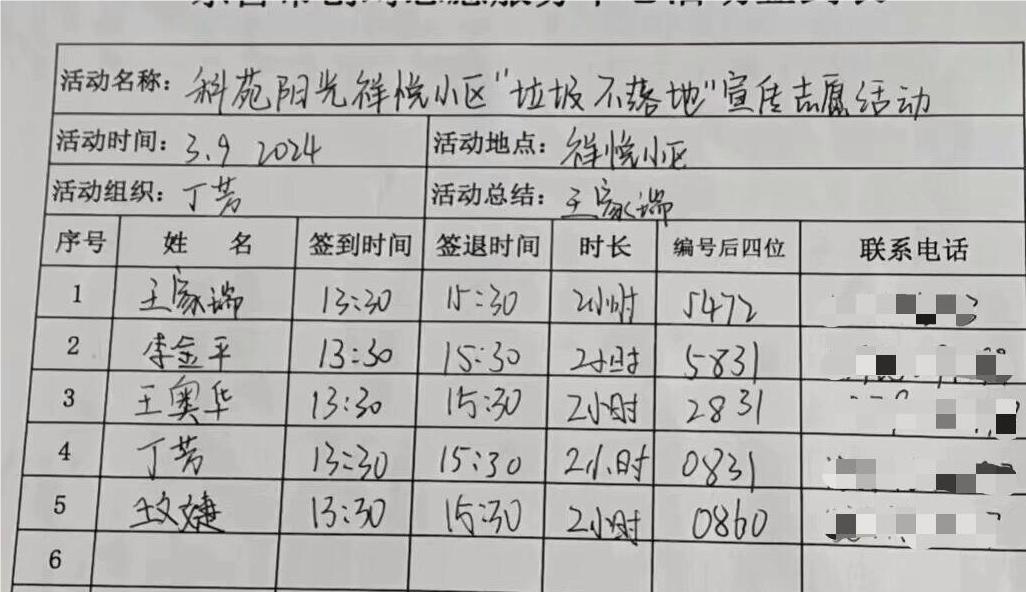 活动名称：科苑阳光祥悦小区"垃圾不落地"宣传志愿活动
活动时间：3.9 2024 活动地点：祥悦小区
活动组织：丁芳 活动总结：王家瑞
序号 姓名 签到时间 签退时间 时长 编号后四位 联系电话
1 王家瑞 13:30 15:30 2小时 5472
2 李金平 13:30 15:30 2小时 5831
3 王奥华 13:30 15:30 2小时 2831
4 丁芳 13:30 15:30 2小时 0831
5 王文婕 13:30 15:30 2小时 0860
6